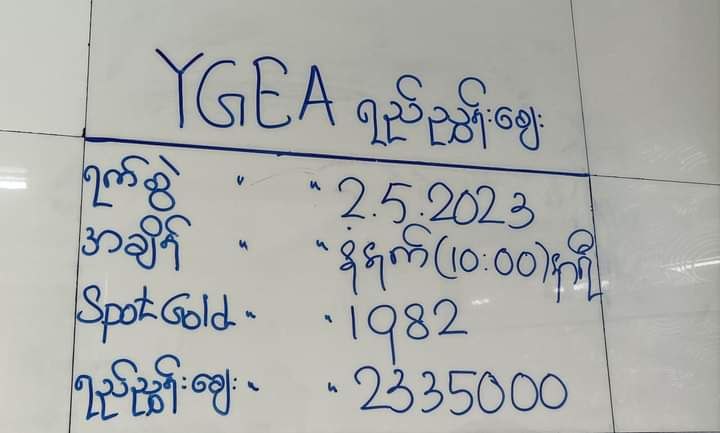 YGEA ရည်ညွှန်းဈေး
ရက်စွဲ " " 2.5.2023
အချိန် " " နံနက်(10:00)နာရီ
Spot Gold " " 1982
ရည်ညွှန်းဈေး " " 2335000